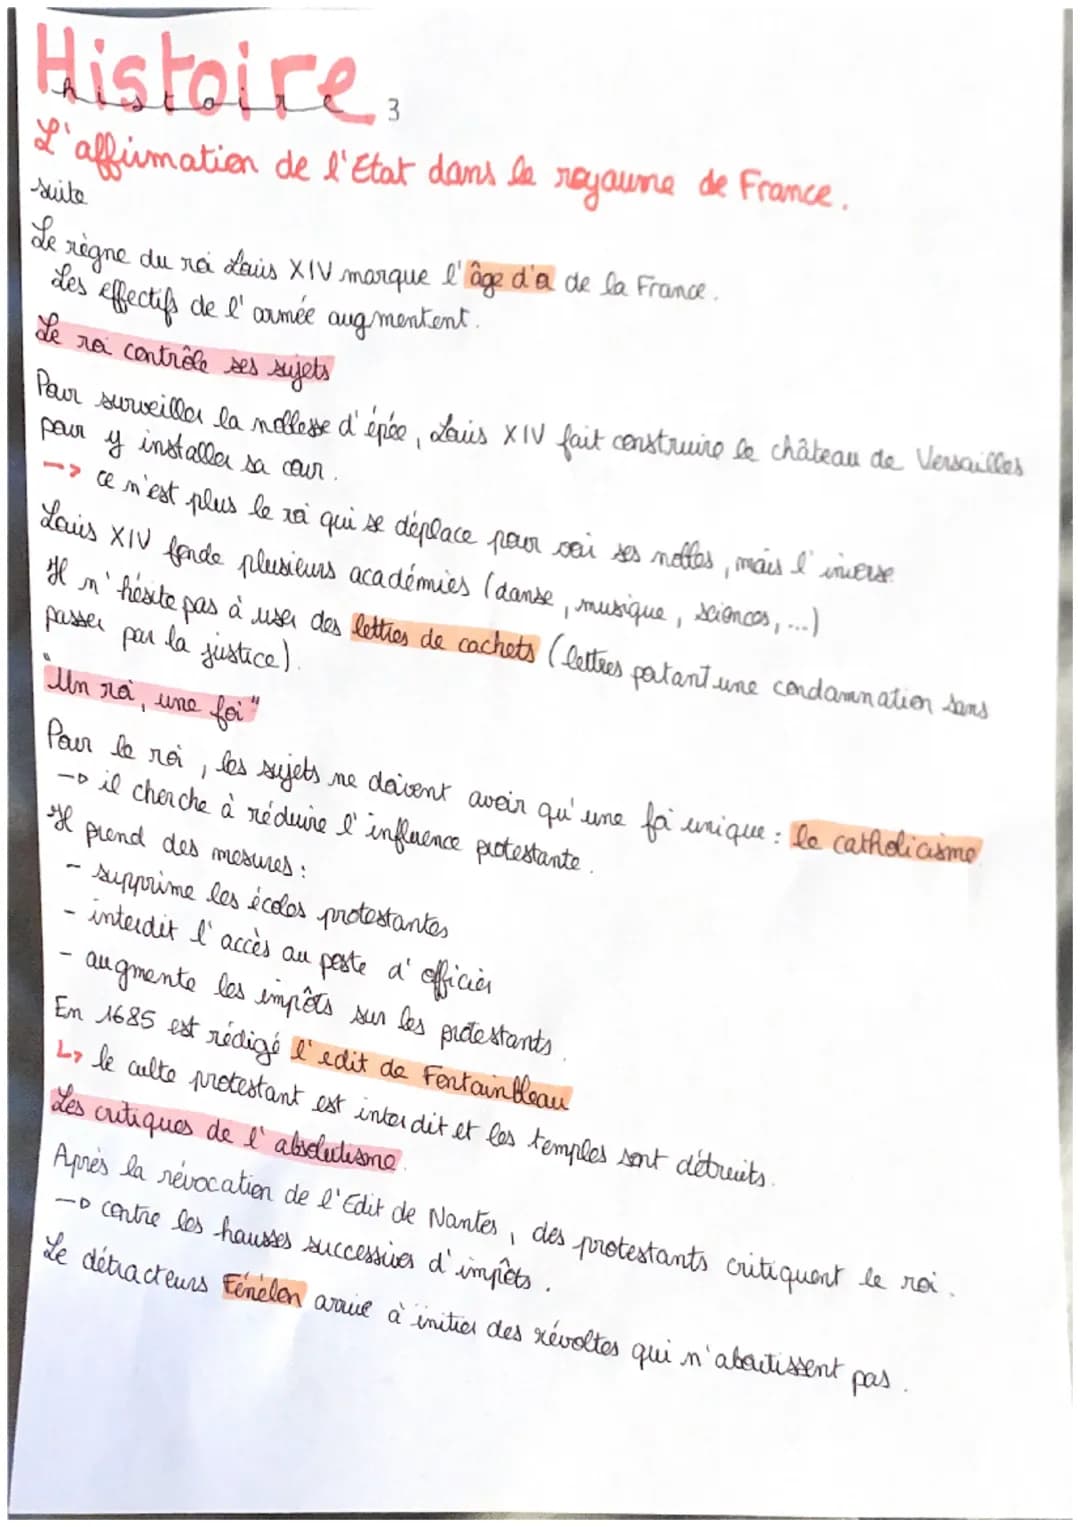 Histoire
histoire 3
L'affirmation de l'Etat dans le royaume de France.
suite
Le règne du roi Louis XIV marque l'âge d'or de la France.
Les effectifs de l'armée augmentent.
Le roi contrôle ses sujets
Pour surveiller la noblesse d'épée, Louis XIV fait construire le château de Versailles
pour y installer sa cour.
--> ce n'est plus le roi qui se déplace pour voir ses nobles, mais l'inverse.
Louis XIV fonde plusieurs académies (danse, musique, sciences, ...)
Il n'hésite pas à user des lettres de cachets (lettres portant une condamnation sans
passer par la justice).
"Un roi, une foi"
Pour le roi, les sujets ne doivent avoir qu'une foi unique : le catholicisme.
→ il cherche à réduire l'influence protestante.
Il prend des mesures :
- supprime les écoles protestantes
- interdit l'accès au poste d'officier
- augmente les impôts sur les protestants.
En 1685 est rédigé l'edit de Fontainbleau
↳ le culte protestant est interdit et les temples sont détruits.
Les critiques de l'absolutisme.
Après la révocation de l'Edit de Nantes, des protestants critiquent le roi.
→ contre les hausses successives d'impôts.
Le détracteurs Fénélon arrive à initier des révoltes qui n'aboutissent pas.